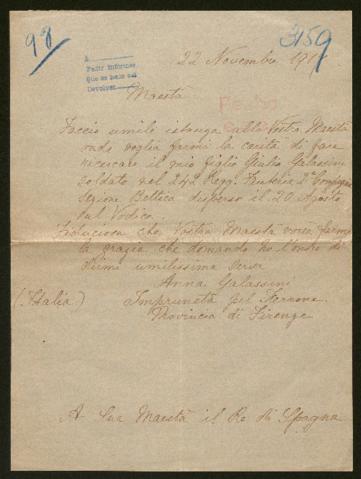 98
3159
A
Pedir informes
Que se hace así
Devolver
22 Novembre 191
Maestà
Faccio umile istanza alla Vostra Maestà
onde voglia farmi la carità di fare
ricercare il mio figlio Giulio Galassini
soldato nel 242 Regg. Fanteria 2ª Compagnia
Sezione disperso il 20 Agosto
sul Vodice.
Fiduciosa che Vostra Maestà vorrà farmi
la grazia che domando ho l'onore di
dirmi umilissima serva
Anna Galassini
(Italia) Impruneta pel Ferrone
Provincia di Firenze
A Sua Maestà il Re di Spagna